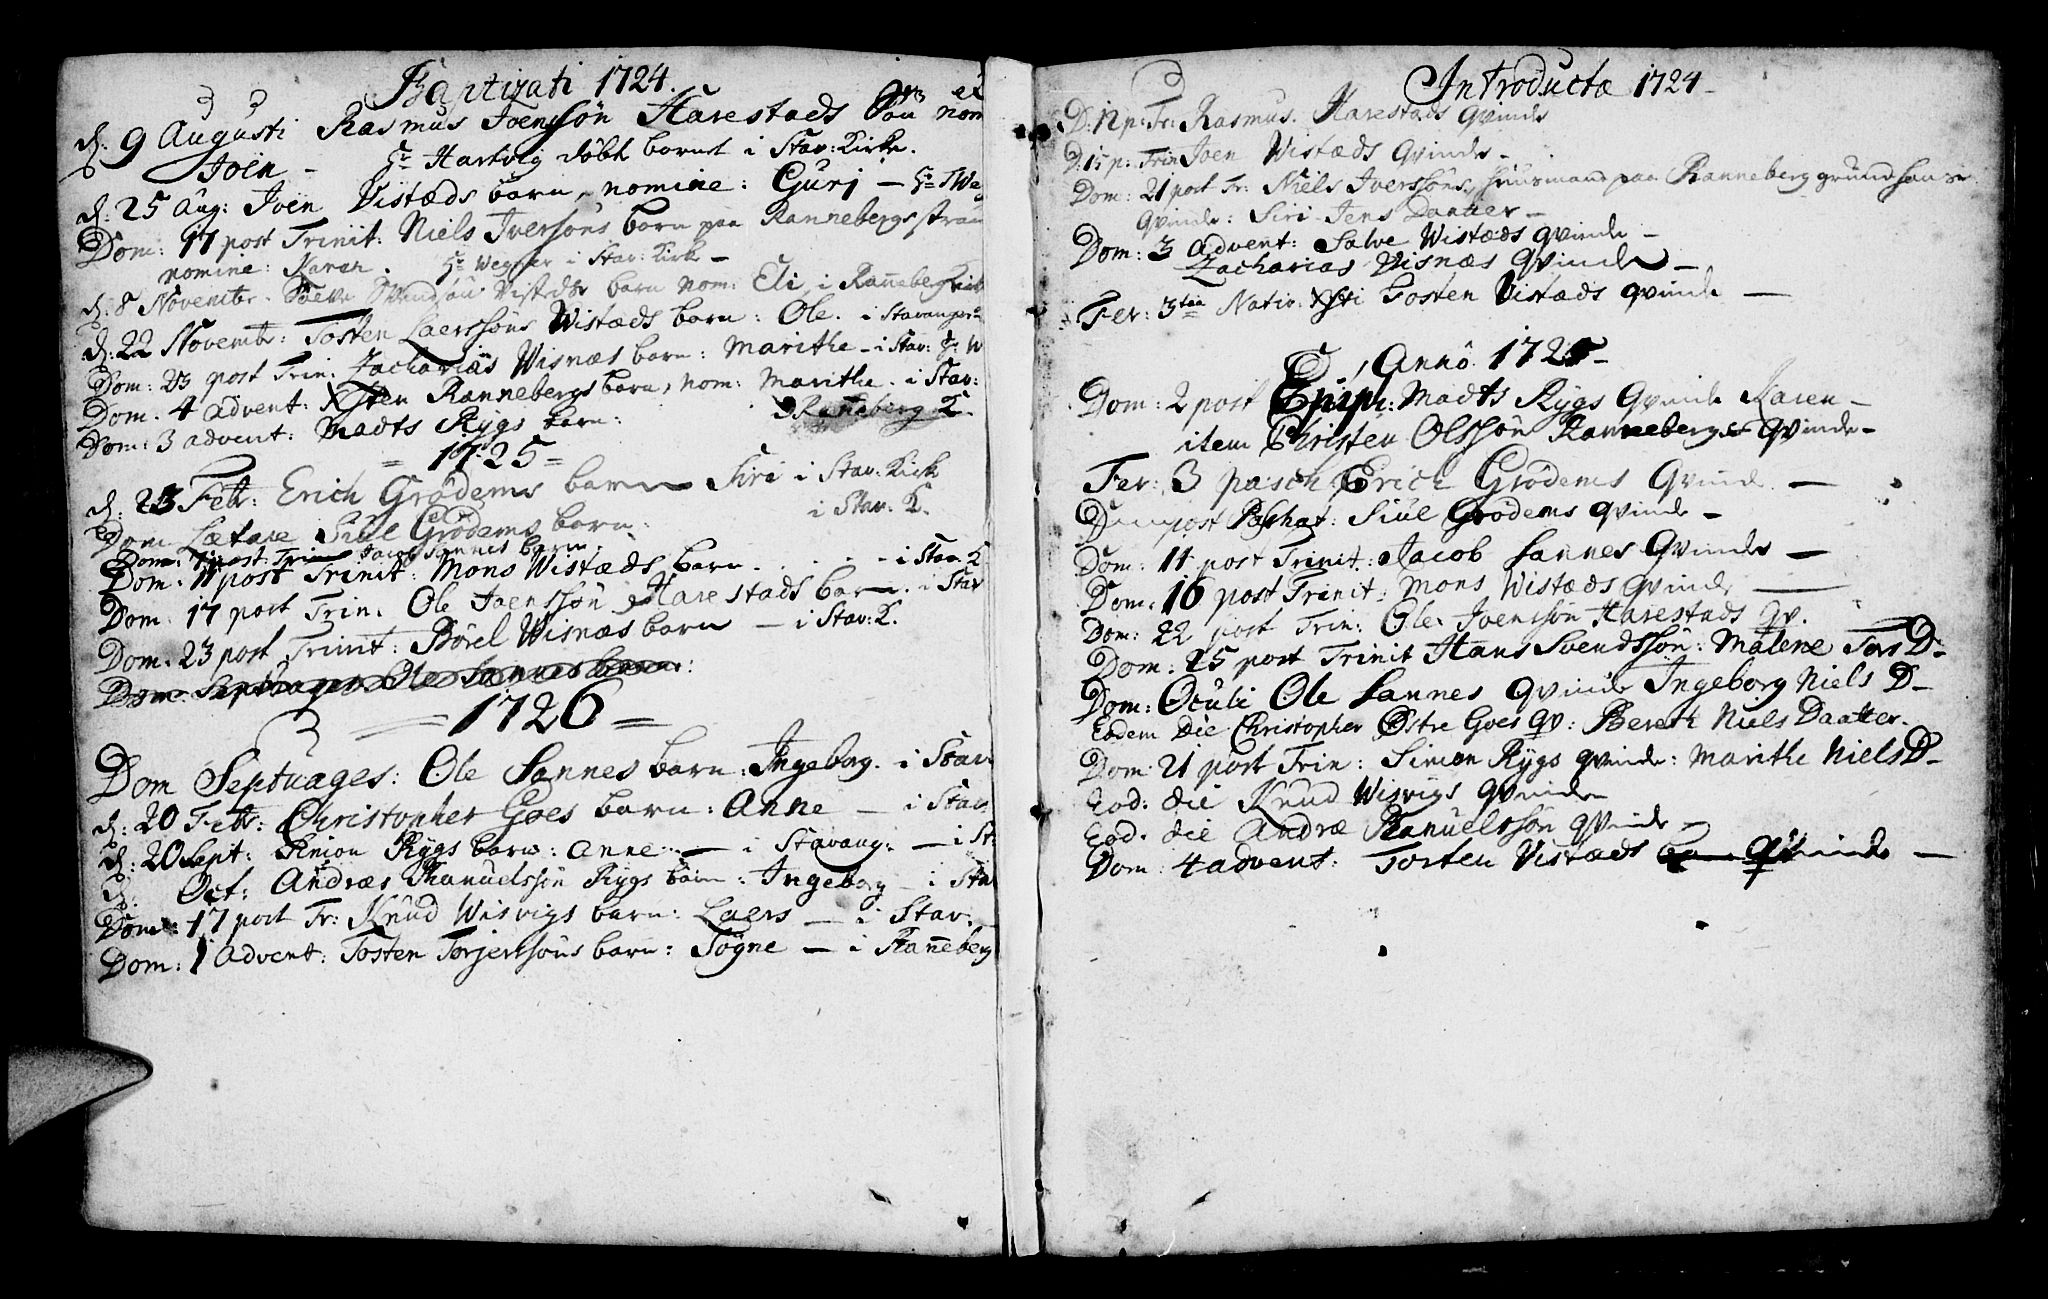 Baptizati 1724.
d: 9 Augusti Rasmus Joenssøn Harestads nom
Joen - Hr Hartvig døbte barnet i Stav: Kirke.
d: 25 Aug: Joen Vistæds barn, nomine: Gurj - Hr We
Dom: 17 post Trinit: Niels Iversøns barn paa Rannebergs stran
nomine: Karen. Hr Wegner i Stav: Kirke -
d: 8 Novembr. barn nom: Eli, i Raneberg
d: 22 Novembr: Tosten Laerssøns Wistæds barn: Ole. i Stavanger
Dom: 23 post Trin: Zacharias Wisnæs barn: Marithe - i Stav: Hr W
Dom. 4 Advent: Xsten Rannebergs barn, nom: Marithe. i Stav:
Dom: 3 advent: Madts Rygs barn: Raneberg K.
= 1725 =
d: 23 Febr: Erich Grødems barn Siri i Stav: Kirk
Dom Lætare Siul Grødems barn: i Stav: K.
Dom: 7 post Trin Jacob Sannes barn
Dom: 11 post Trinit: Mons Wistæds barn. - i Stav: K
Dom: 17 post Trin. Ole Joenssøn Harestads barn. i Stav
Dom. 23 post Trinit: Børel Wisnæs barn - i Stav: K.
Dom: Septuages Ole Sannes barn:
= 1726 =
Dom Septuages: Ole Sannes barn: Ingeborg. i Stav
d: 20 Febr: Christopher Goes barn: Anne - i Stav
d: 20 Sept: Simon Rygs barn: Anne - i Stavang: - i St:
d: Oct: Andræs Rygs barn: Ingeborg - i Sta
Dom: 17 post Tr: Knud Wisvigs barn: Laers - i Stav:
Dom: 1 Advent: Tosten Torjerssøns barn: Søgne - i Raneberg
Introductæ 1724
D: 12 p: Tr: Rasmus. Harestads qvinde
D. 15 p: Trin Joen Wistæds qvinde -
Dom: 21 post Tr: Niels Iverssøns, huusmand paa Ranneberg grund
qvinde: Siri Jens Daatter -
Dom: 3 Advent: Salve Wistæds qvinde -
Zacharias Visnæs qvinde -
Fer: 3tia Nativ: Xsti Tosten Vistæds qvinde -
Anno 1725
Dom: 2 post Epiph: Madts Rygs Qvinde Karen -
item Christen Olssøn Rannebergs Qvinde -
Fer: 3 pasch Erich Grødems Qvinde -
Dom post Paschat: Siul Grødems qvinde -
Dom: 11 post Trinit: Jacob Sannes Qvinde -
Dom. 16 post Trinit: Mons Wistæds qvinde -
Dom: 22 post Trin: Ole Joenssøn Harestads qv.
Dom: 25 post Trinit Hans Svendssøn: Malene Tors D-
Dom: Oculi Ole Sannes qvinde Ingeborg Niels D-
Eodem die Christopher Østre Goes qv: Bereth Niels Daatter.
Dom: 21 post Trin: Simon Rygs qvinde: Marithe Niels D-
Eod: die Knud Wisvigs qvinde
Eod. die Andræ qvinde -
Dom: 4 advent: Tosten Vistæds qvinde -